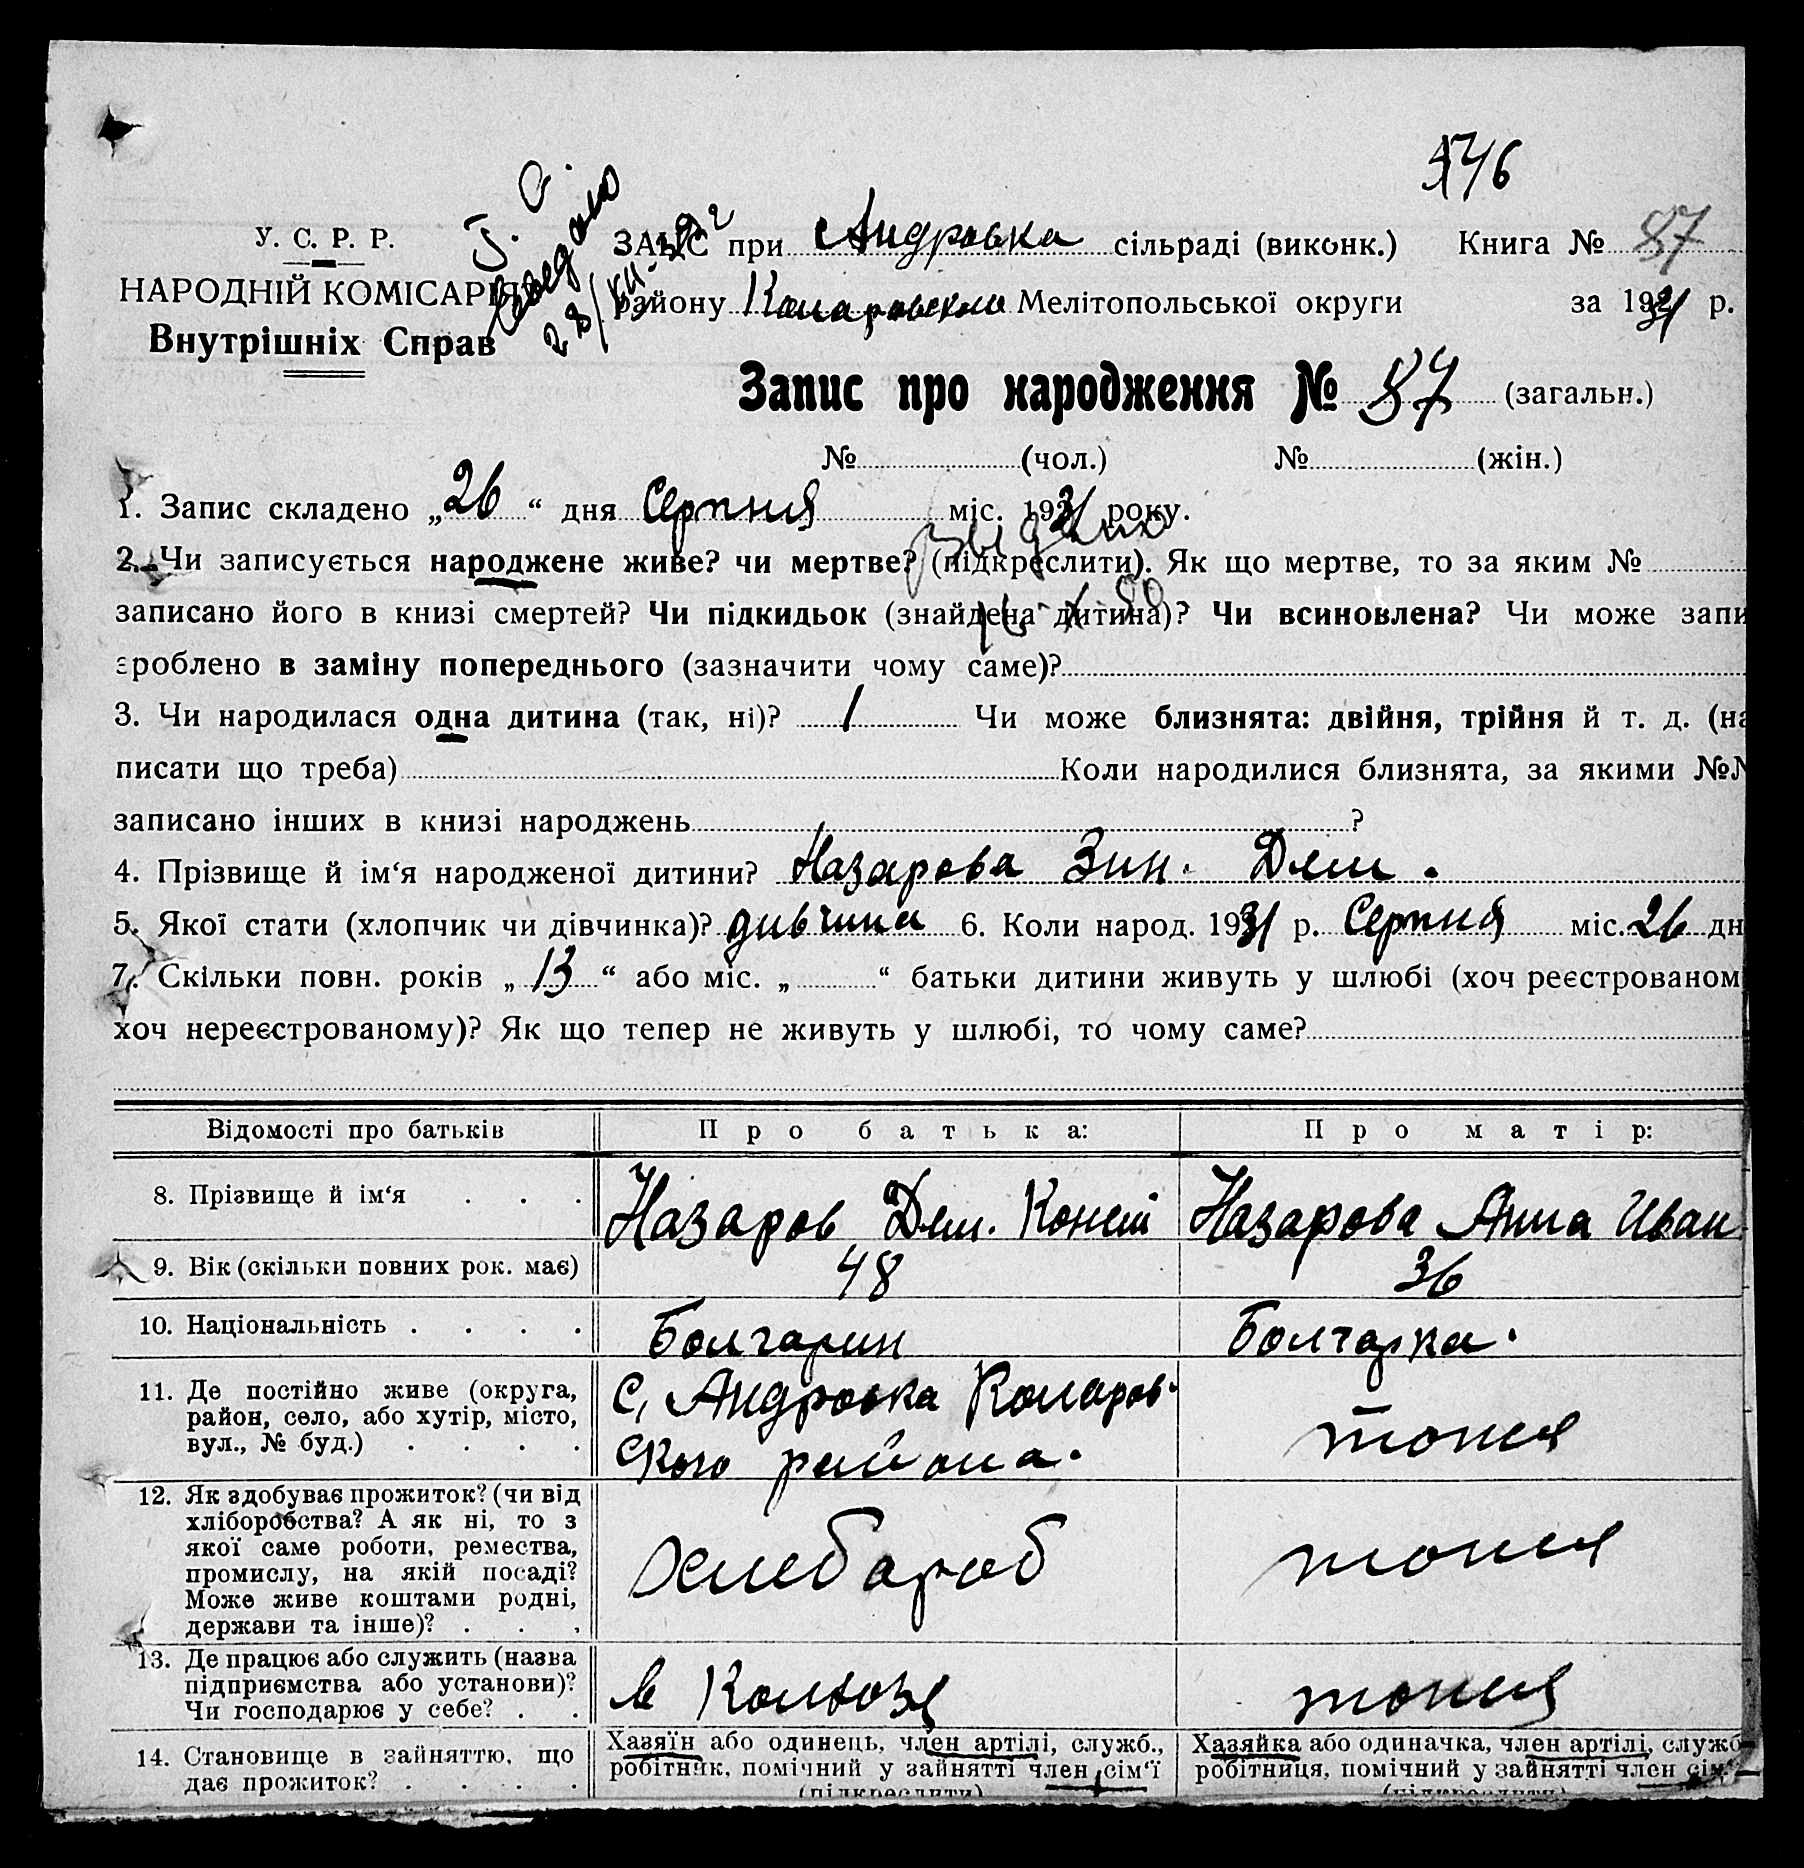 546
У. С. Р. Р.
НАРОДНІЙ КОМІСАРІЯТ
Внутрішніх Справ
28/XII-39 г
ЗАПИС при Андровка сільраді (виконк.) Книга № 87
району Коларовском Мелітопольської округи за 1931 р.
Запис про народження № 87 (загальн.)
№ (чол.) № (жін.)
1. Запис складено „26“ дня Серпня міс. 1931 року.
2. Чи записується народжене живе? чи мертве? (підкреслити). Як що мертве, то за яким №
записано його в книзі смертей? Чи підкидьок (знайдена дитина)? Чи всиновлена? Чи може запи
зроблено в заміну попереднього (зазначити чому саме)?
3. Чи народилася одна дитина (так, ні)? 1 Чи може близнята: двійня, трійня й т. д. (на
писати що треба) Коли народилися близнята, за якими №№
записано інших в книзі народжень ?
4. Прізвище й ім‘я народженої дитини? Назарова Зин. Дем.
5. Якої стати (хлопчик чи дівчинка)? дивчина 6. Коли народ. 1931 р. Серпня міс. 26 дн
7. Скільки повн. років „13“ або міс. „ “ батьки дитини живуть у шлюбі (хоч реєстрованом
хоч нереєстрованому)? Як що тепер не живуть у шлюбі, то чому саме?
Відомості про батьків Про батька: Про матір:
8. Прізвище й ім‘я . . . Назаров Дем. Назарова Анна Иван.
9. Вік (скільки повних рок. має) 48 36
10. Національність . . . . Болгарин Болгарка.
11. Де постійно живе (округа,
район, село, або хутір, місто,
вул., № буд.) . . . .
с, Андровка Коларов-
ского района.
тоже
12. Як здобуває прожиток? (чи від
хліборобства? А як ні, то з
якої саме роботи, ремества,
промислу, на якій посаді?
Може живе коштами родні,
держави та інше)? . . .
Хлебароб
тоже
13. Де працює або служить (назва
підприємства або установи)?
Чи господарює у себе? . .
в Колхозе
тоже
14. Становище в зайняттю, що
дає прожиток? . . . .
Хазяїн або одинець, член артілі, служб.,
робітник, помічний у зайнятті член сім‘ї
(підкреслити)
Хазяйка або одиначка, член артілі, служб
робітниця, помічний у зайнятті член сім‘ї
(підкреслити)